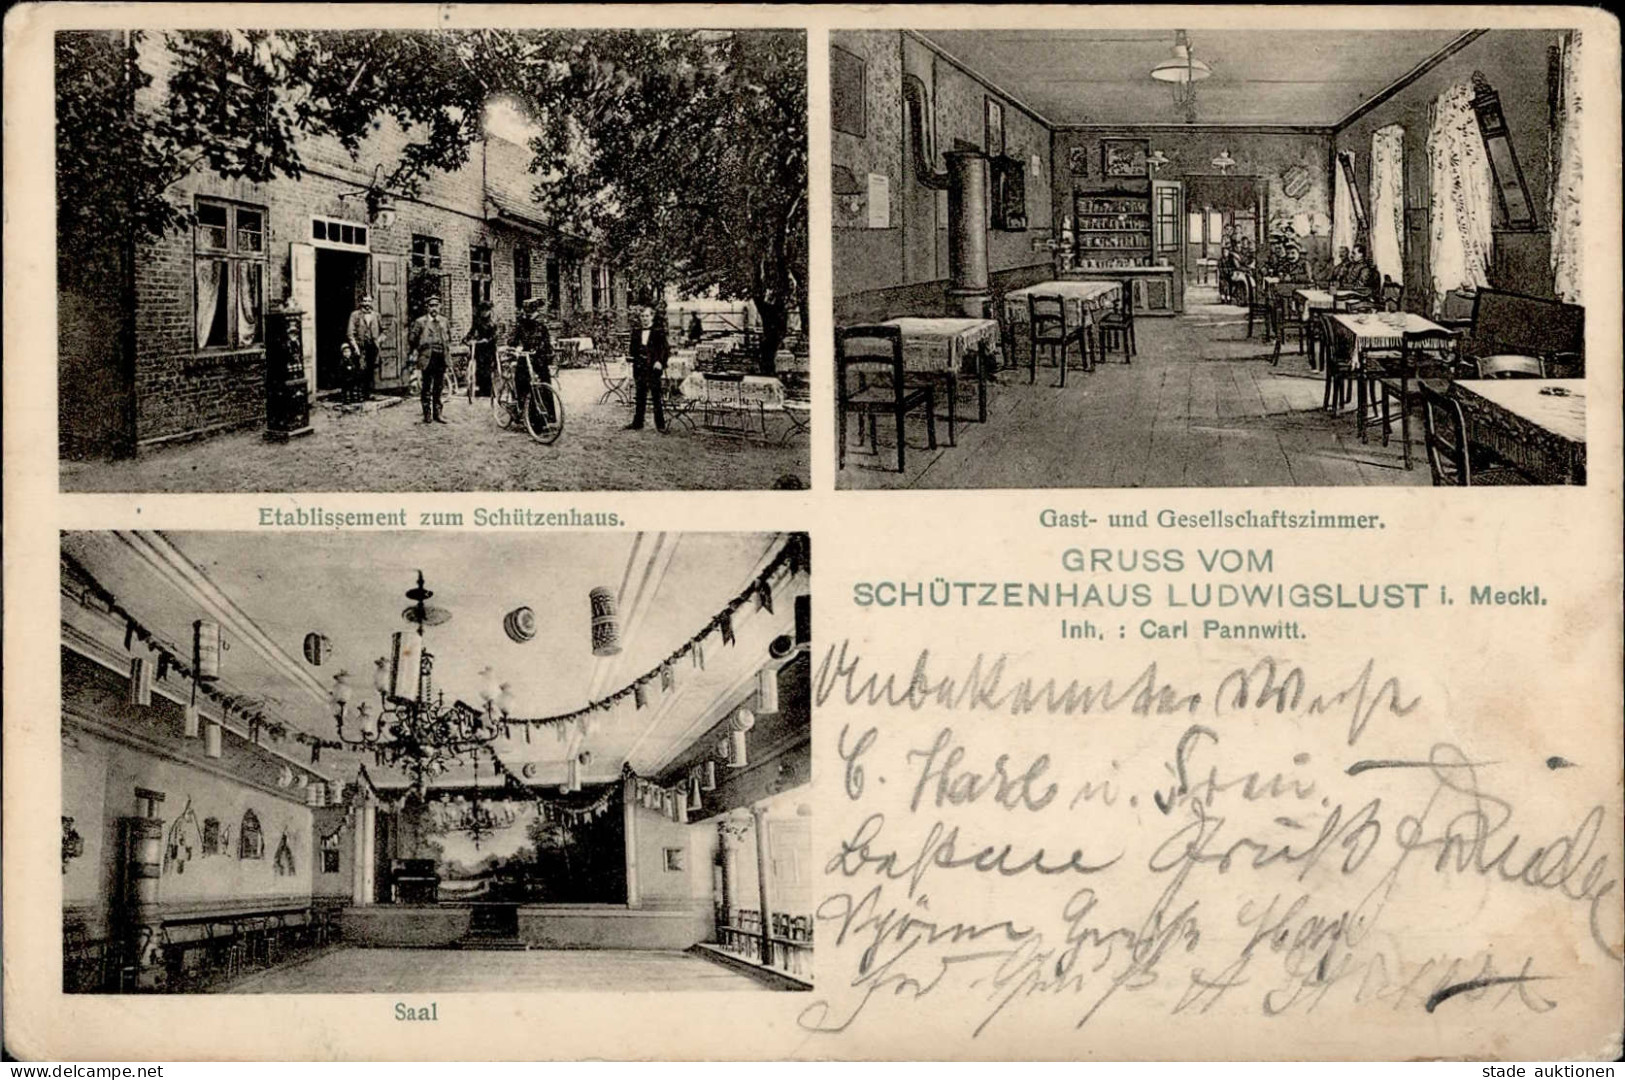 Etablissement zum Schützenhaus.
Gast- und Gesellschaftszimmer.
GRUSS VOM
SCHÜTZENHAUS LUDWIGSLUST i. Meckl.
Inh. : Carl Pannwitt.
Unbekannter Weise
u. Frau.
Besten Gruß
Gruß
Gruß
Saal
stade auktionen